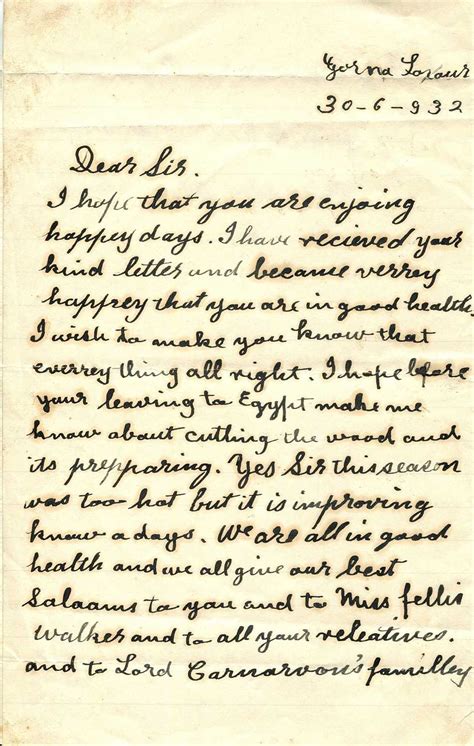 Gorna Loxour
30-6-932
Dear Sir.
I hope that you are enjoing
happey days. I have recieved your
kind letter and became verrey
happrey that you are in good health.
I wish to make you know that
everrey thing all right. I hope before
your leaving to Egypt make me
know about cutting the wood and
its prepparing. Yes Sir this season
was too hot but it is improving
know a days. We are all in good
health and we all give our best
Salaams to you and to Miss fellis
walker and to all your releatives.
and to Lord Carnarvon's familley